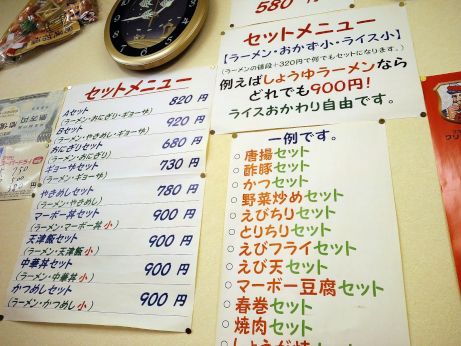 580 円
セットメニュー
【ラーメン・おかず小・ライス小】
(ラーメンの値段+320円で何でもセットになります。)
例えばしょうゆラーメンなら
どれでも900円!
ライスおかわり自由です。
セットメニュー
Aセット 820 円
(ラーメン・おにぎり・ギョーザ)
Bセット 920 円
(ラーメン・やきめし・ギョーザ)
おにぎりセット 680 円
(ラーメン・おにぎり)
ギョーザセット 730 円
(ラーメン・ギョーザ)
やきめしセット 780 円
(ラーメン・やきめし)
マーボー丼セット 900 円
(ラーメン・マーボー丼 小)
天津飯セット 900 円
(ラーメン・天津飯 小)
中華丼セット 900 円
(ラーメン・中華丼 小)
かつめしセット 900 円
(ラーメン・かつめし 小)
一例です。
○唐揚セット
○酢豚セット
○かつセット
○野菜炒めセット
○えびちりセット
○とりちりセット
○えびフライセット
○えび天セット
○マーボー豆腐セット
○春巻セット
○焼肉セット
○しょうが焼セット